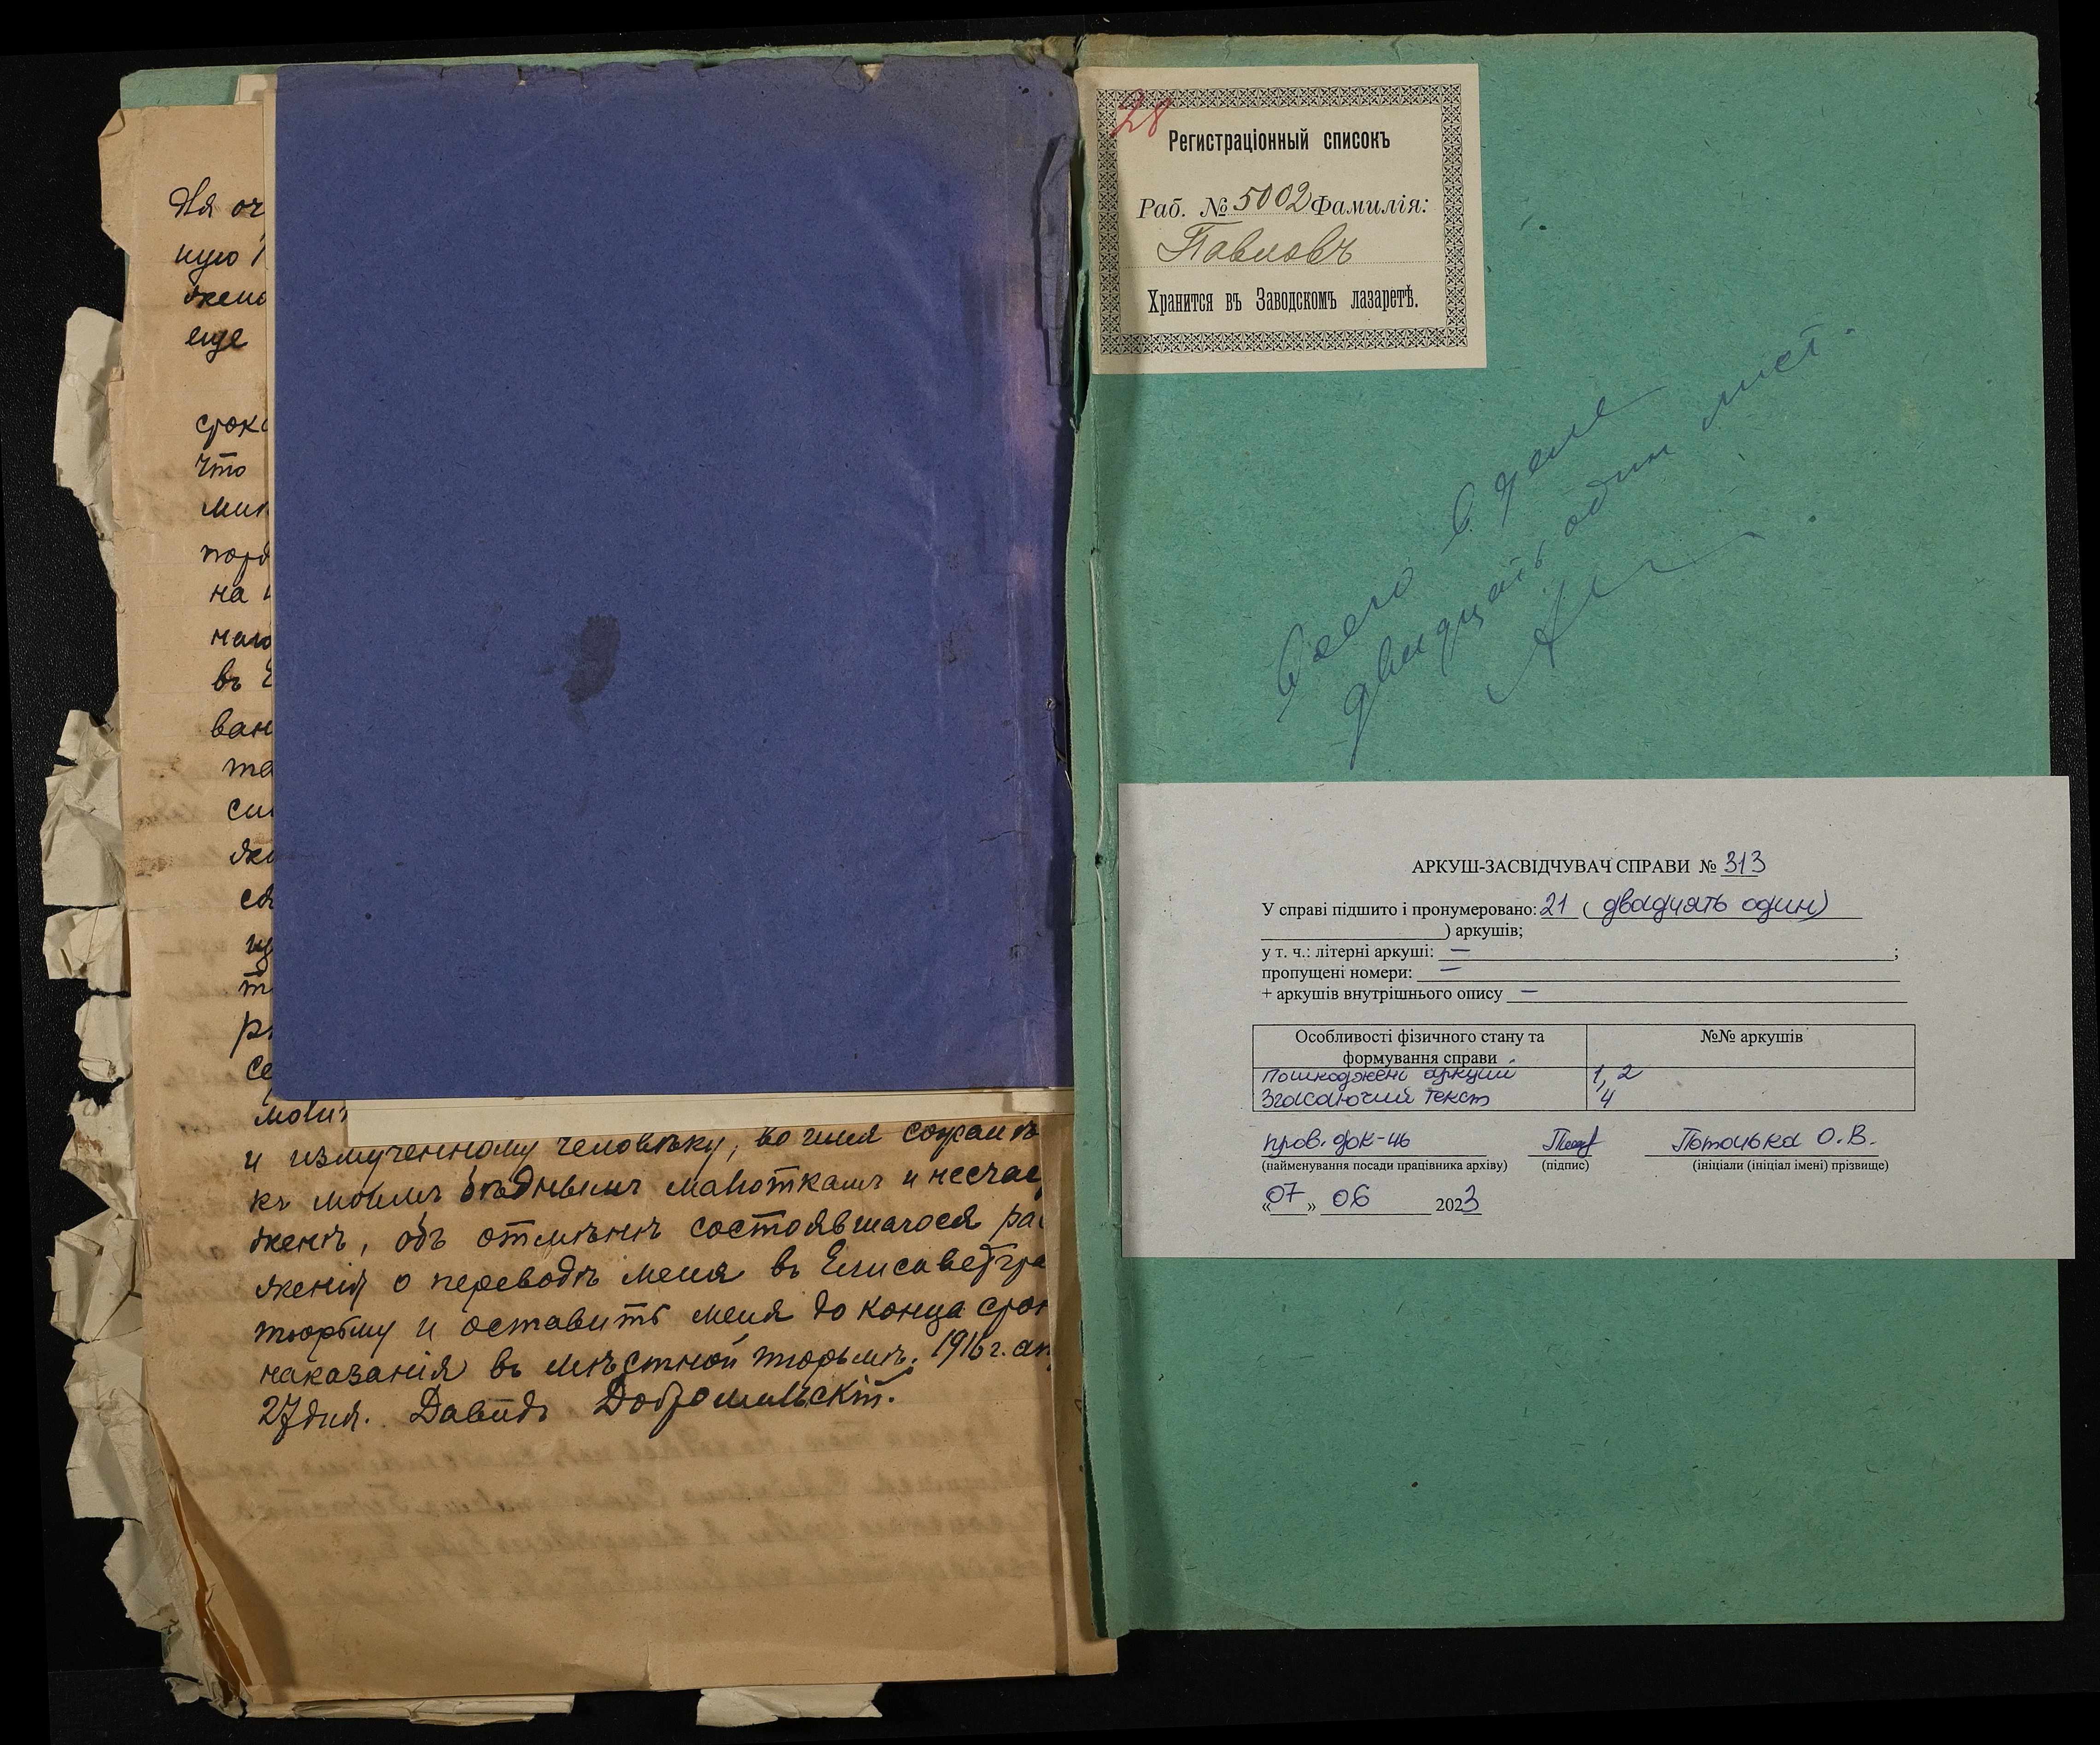 ную
еще
срок
что
на
въ
ван
та
и измученному человѣку, во имя
къ моимъ бѣднымъ малюткамъ и несчас
женѣ, объ отмѣнѣ состоявшагося ра
женія о переводѣ меня въ Елисаветгра
тюрьму и оставить меня до конца срок
наказанія въ мѣстной тюрьмѣ. 1916 г. ап
27 дня. Давидъ Добромильскій.
28
Регистраціонный списокъ
Раб. № 5002 Фамилія:
Павловъ
Хранится въ Заводскомъ лазаретѣ.
Всего в деле
двадцать один лист
АРКУШ-ЗАСВІДЧУВАЧ СПРАВИ № 313
У справі підшито і пронумеровано: 21 ( двадцять один)
) аркушів;
у т. ч.: літерні аркуші: — ;
пропущені номери: —
+ аркушів внутрішнього опису —
Особливості фізичного стану та №№ аркушів
формування справи
Пошкоджені аркуші 1, 2
Згасаючий текст 4
пров. док-ч Потоцька О.В.
(найменування посади працівника архіву) (підпис) (ініціали (ініціал імені) прізвище)
«07» 06 2023